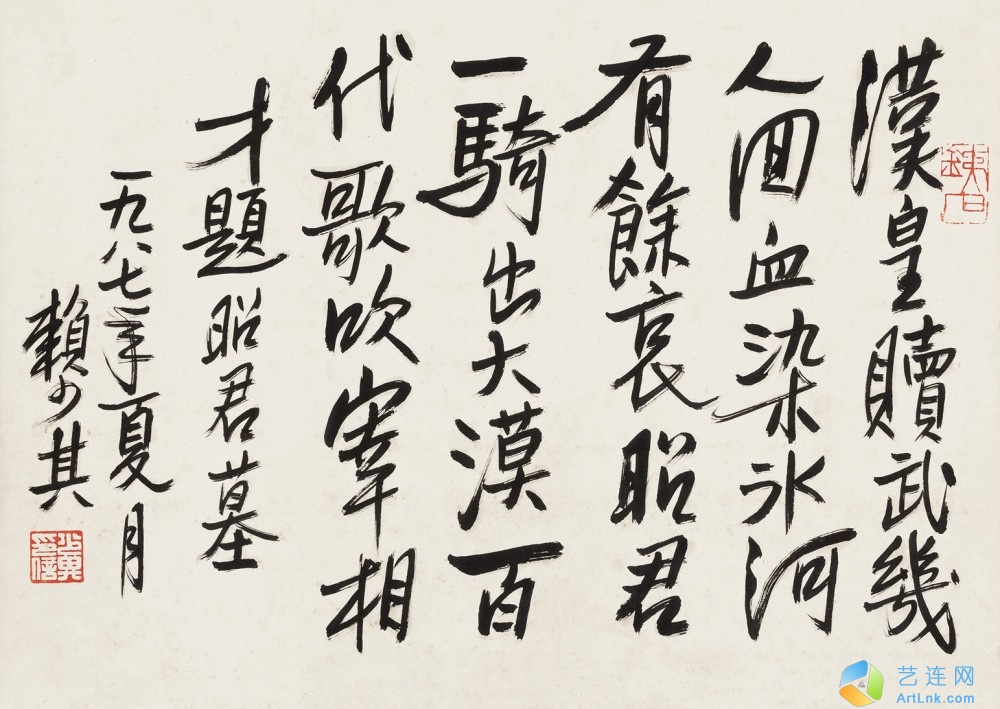 漢皇贖武幾
人回血染冰河
有餘哀昭君
一騎出大漠百
代歌吹宰相
才題昭君墓
一九八七年夏月
賴少其
少其
印信
艺连网
ArtLnk.com